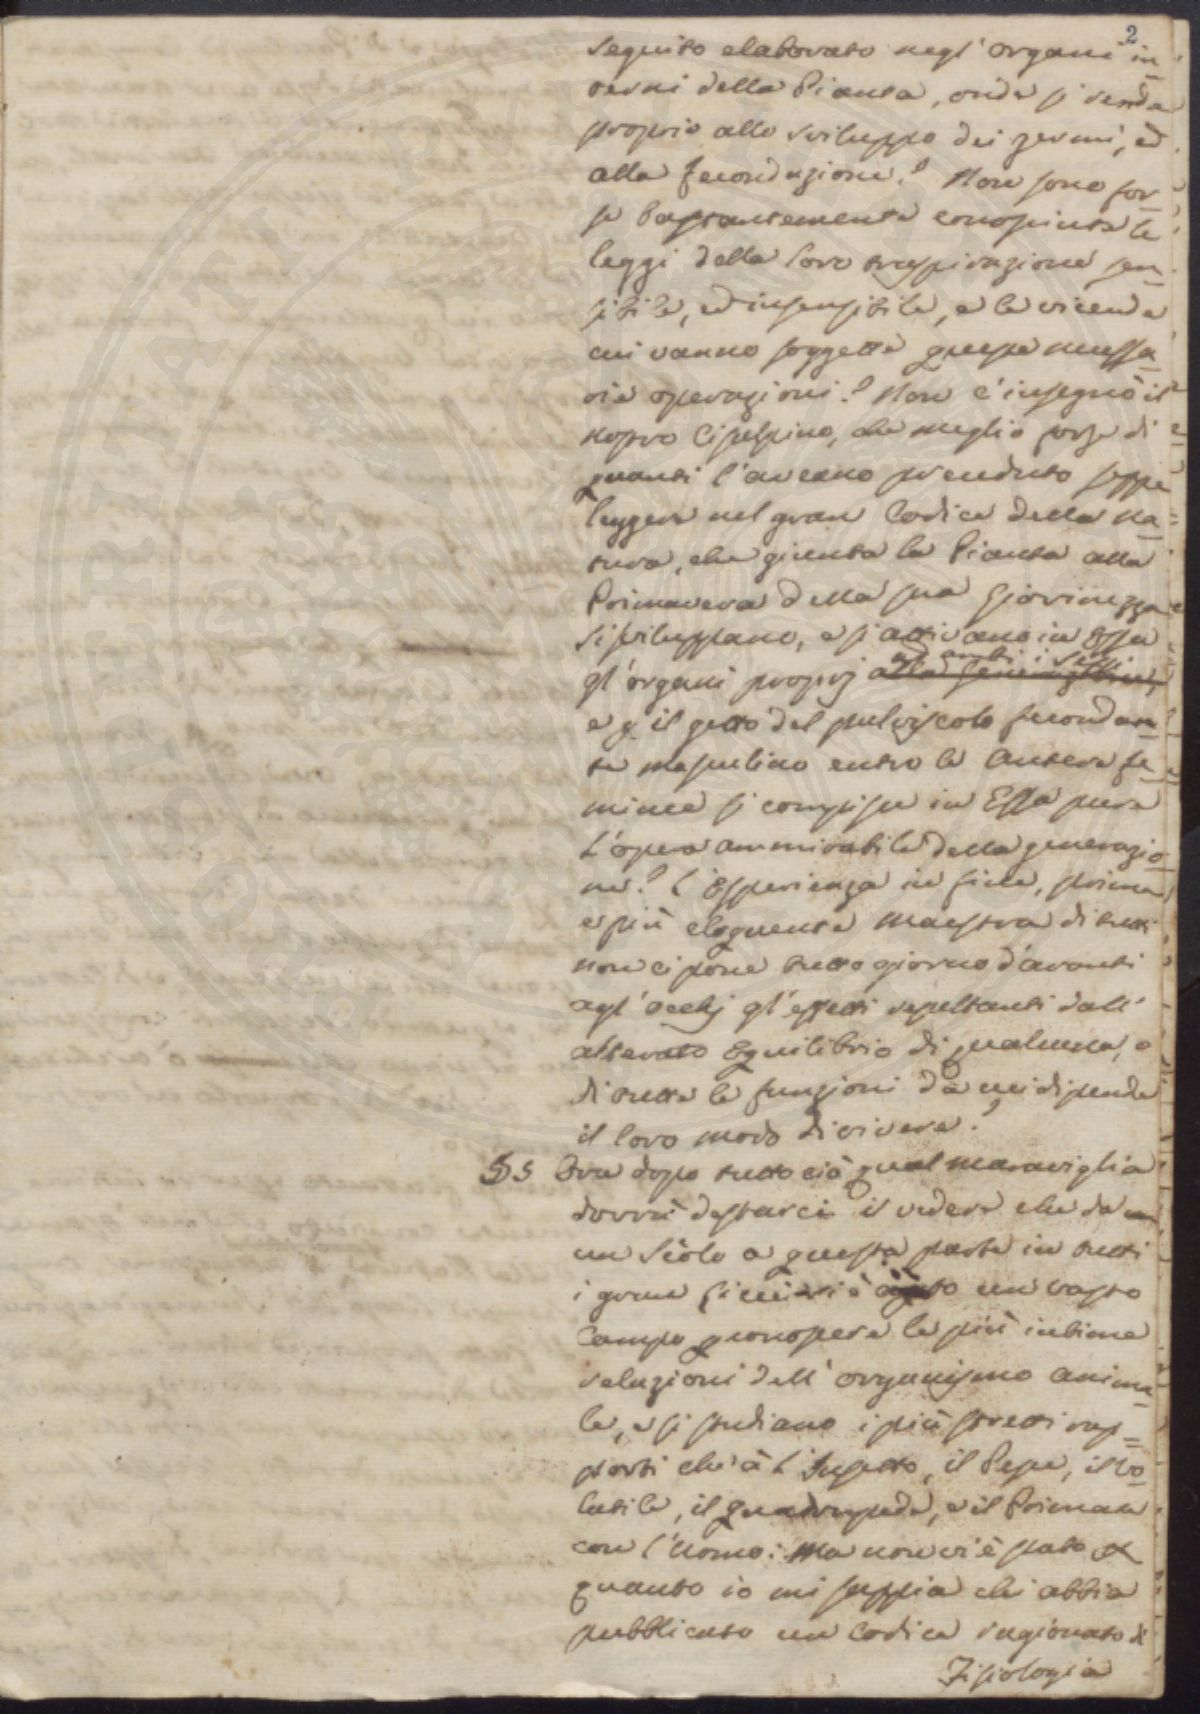 2
seguito elaborato negl' organi in=
terni della Pianta, onde si renda
proprio allo sviluppo dei germi, ed
alla fecondazione? Non sono for=
se bastantemente conosciute le
leggi della loro traspirazione sen=
sibile, ed insensibile, e le vicende
cui vanno soggette queste necessa=
rie operazioni? Non c'insegnò il
nostro Cisalpino, che meglio forse di
quanti l'aveano preceduto seppe
leggere nel gran Codice della Na=
tura, che giunta la Pianta alla
Primavera della sua giovinezza
si sviluppano, e si attivano in Essa
gl'organi proprj ad ambi i sessi
e p il getto del pulviscolo fecondan=
te mascolino entro le Antere fe=
minee si compisce in Essa pure
L'opera ammirabile della generazio=
ne? L'Esperienza in fine, prima
e più eloquente Maestra di tutti
non ci pone tutto giorno d'avanti
agl'occhj gl'effetti resultanti dall'
alterato Equilibrio di qualcuna, o
di tutte le funzioni da cui dipende
il loro modo di vivere?
§ 5 Ora dopo tutto ciò qual maraviglia
dovrà destarci il vedere che da
un Secolo a questa parte in tutti
i Ginne si è aperto un vasto
Campo p conoscere le più intime
relazioni dell'organismo anima=
le, e si studiano i più stretti rap=
porti che à L'Insetto, il Pesce, il Vo=
latile, il quadrupede, e il Primate
con l'Uomo: Ma non vi è stato p
quanto io mi sappia chi abbia
pubblicato un Codice ragionato di
Fisiologia